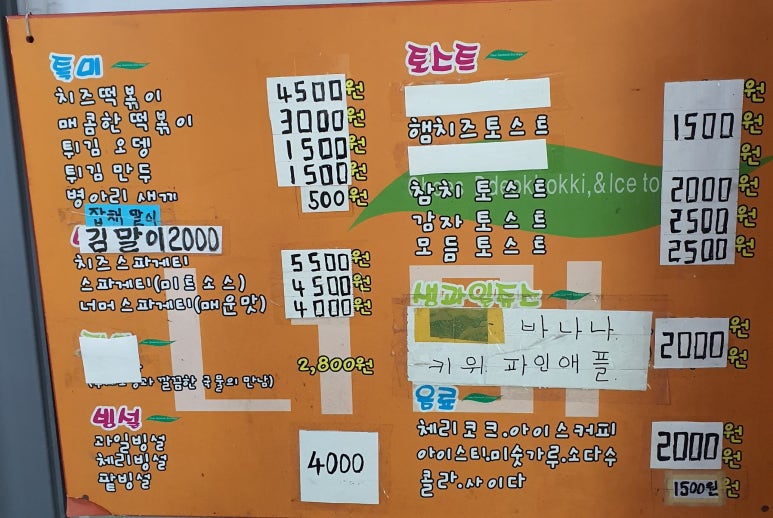 튀미
치즈떡볶이 4500원
매콤한 떡볶이 3000원
튀김 오뎅 1500원
튀김 만두 1500원
병아리 새끼 500원
잡채 말이
김말이2000
치즈스파게티 5500원
스파게티(미트소스) 4500원
너머스파게티(매운맛) 4000원
2,800원
깔끔한 국물의 만남)
빈설
과일빙설
체리빙설 4000
팥빙설
토스트
원
햄치즈토스트 1500원
원
참치 토스트 2000원
감자 토스트 2500원
모듬토스트 2500원
okki,&Ice to
바나나
키위 파인애플 2000원
음료
체리코크.아이스커피 원
아이스티.미숫가루.소다수 2000원
콜라.사이다 1500원